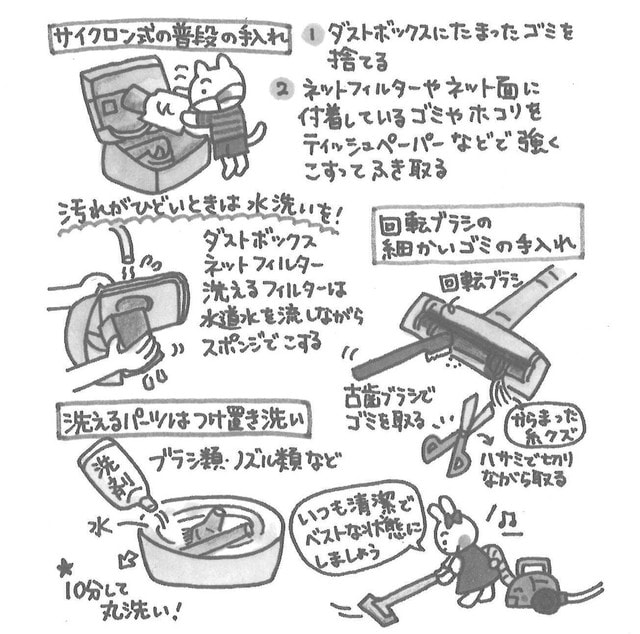 サイクロン式の普段の手入れ
1 ダストボックスにたまったゴミを
捨てる
2 ネットフィルターやネット面に
付着しているゴミやホコリを
ティッシュペーパーなどで強く
こすってふき取る
汚れがひどいときは水洗いを!
ダストボックス
ネットフィルター
洗えるフィルターは
水道水を流しながら
スポンジでこする
回転ブラシの
細かいゴミの手入れ
回転ブラシ
古歯ブラシで
ゴミを取る
からまった
糸クズ
ハサミで切り
ながら取る
洗えるパーツはつけ置き洗い
ブラシ類・ノズル類など
洗剤
水
★
10分して
丸洗い!
いつも清潔で
ベストな状態に
しましょう